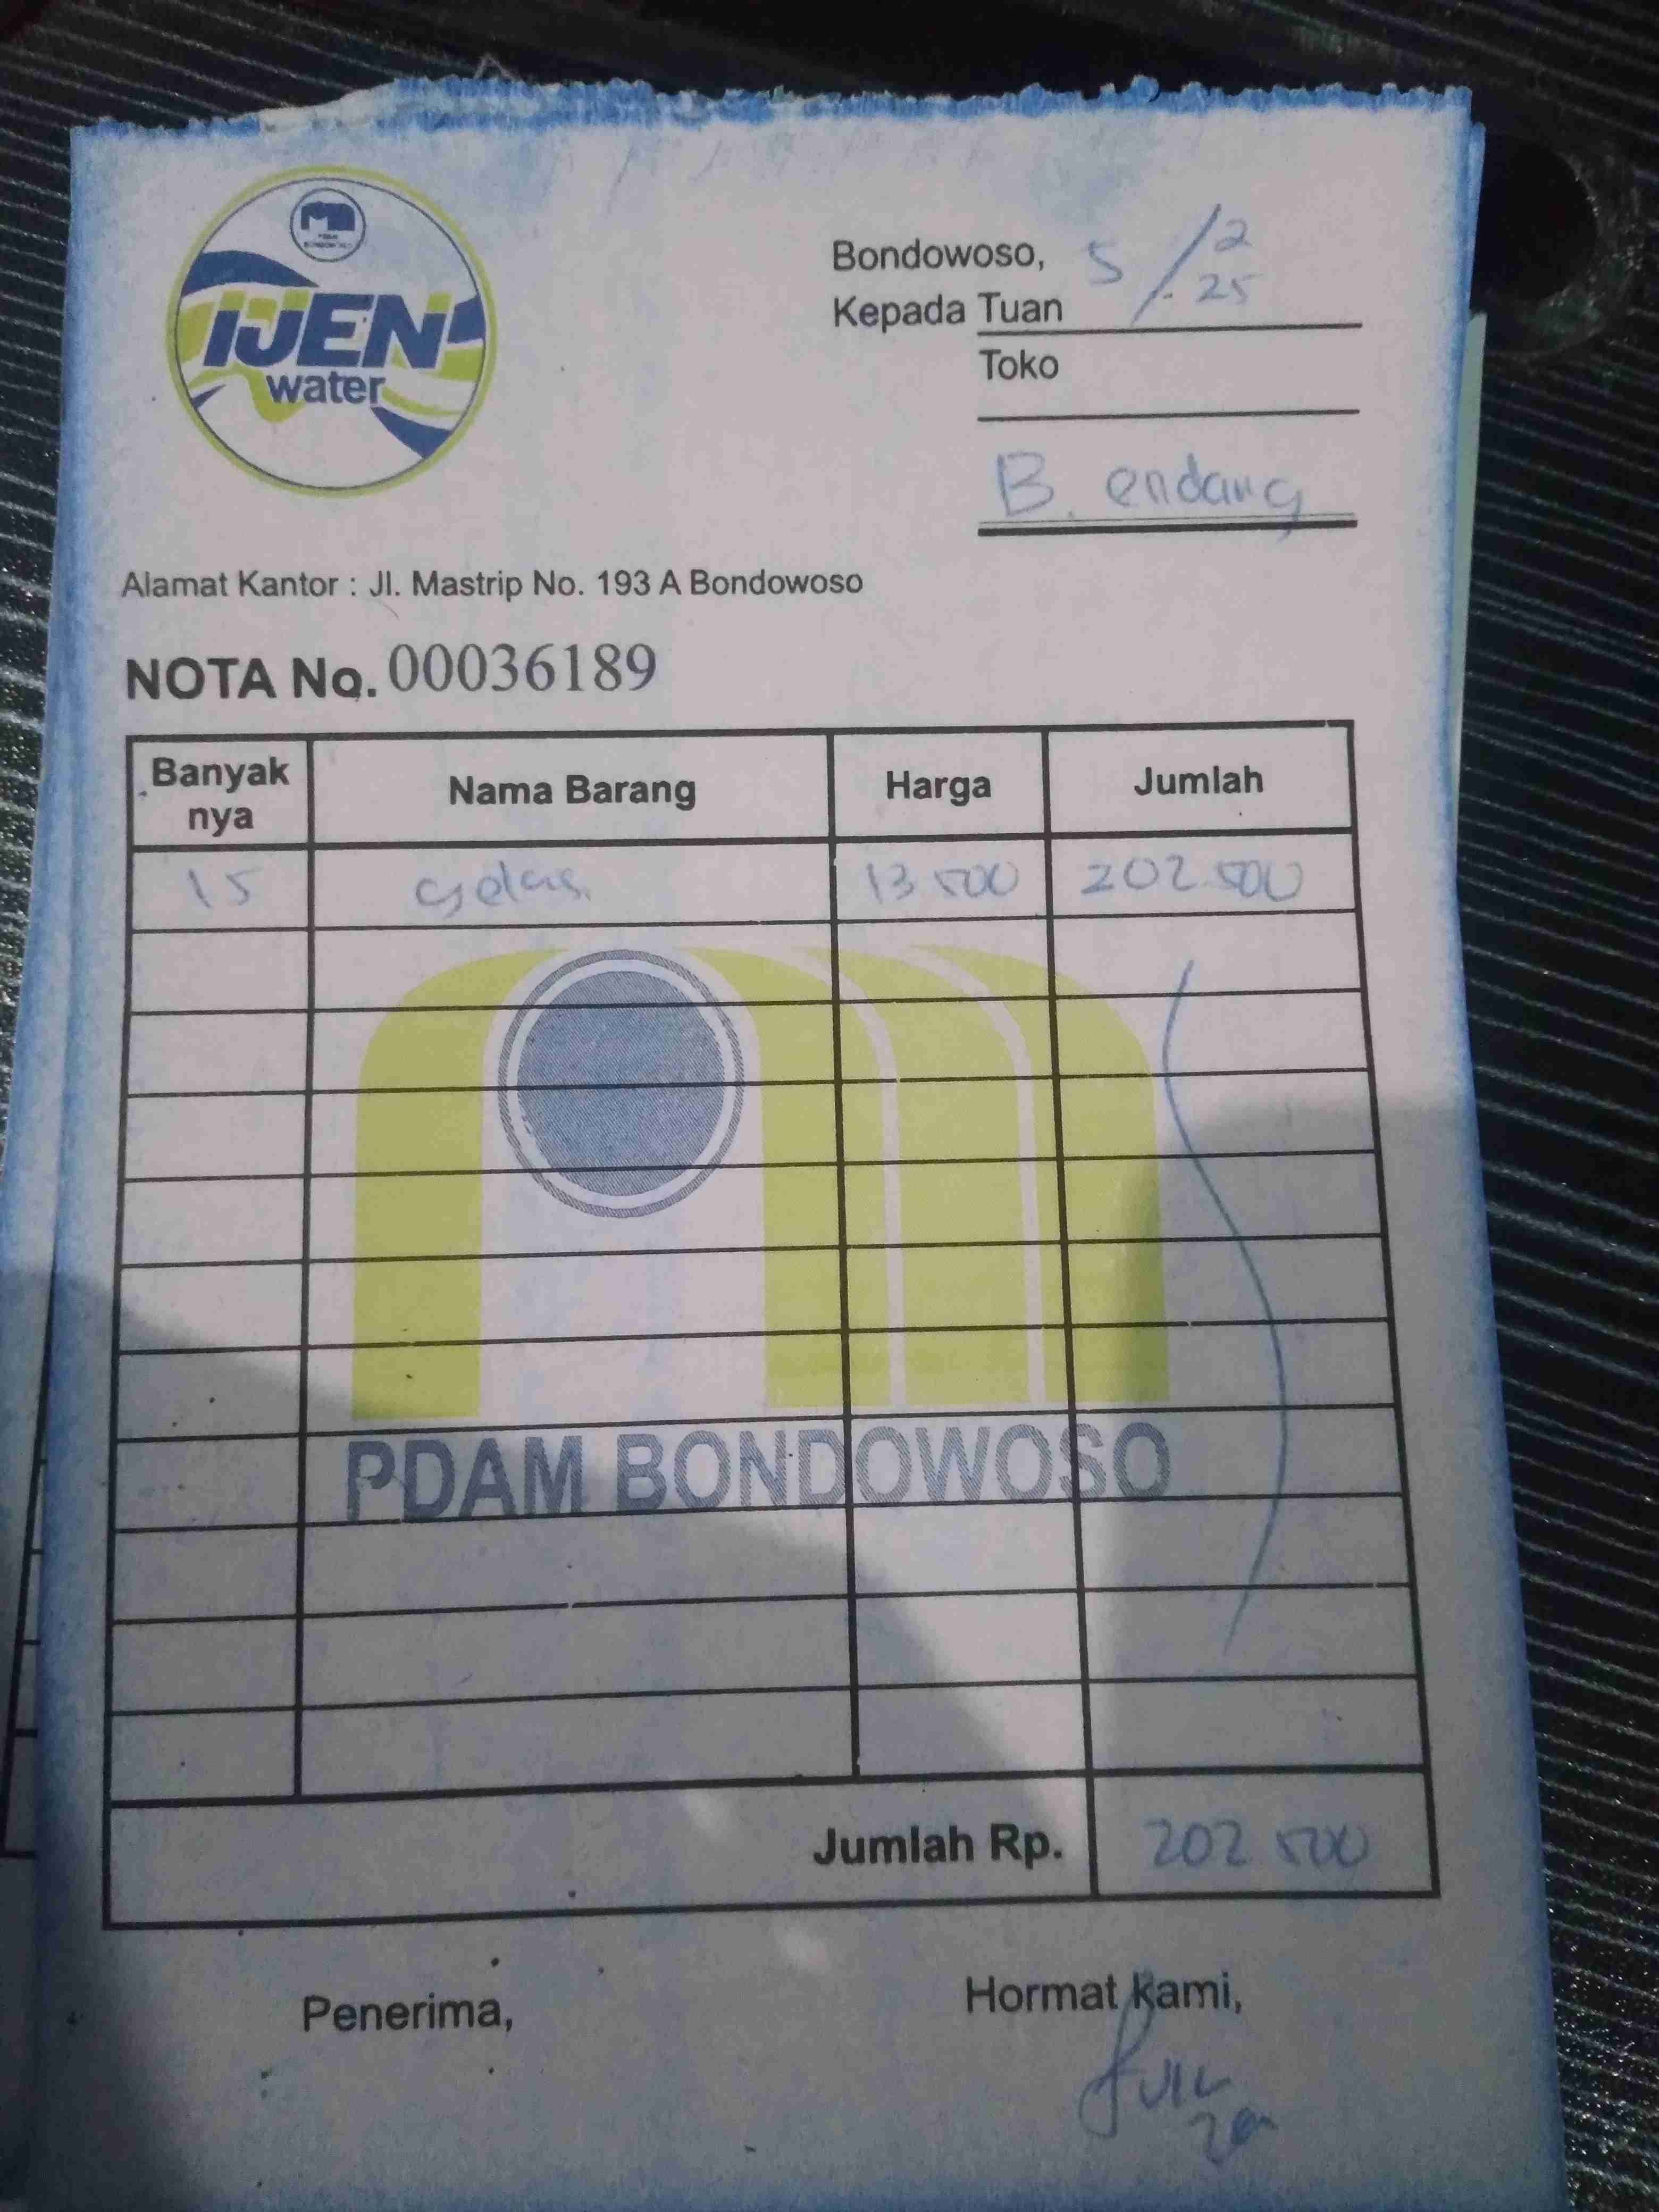 PDAM
BONDOWOSO
IJEN
water
Bondowoso, 5/2 25
Kepada Tuan
Toko
B. endang
Alamat Kantor : Jl. Mastrip No. 193 A Bondowoso
NOTA No. 00036189
Banyak nya Nama Barang Harga Jumlah
15 gelas 13 500 202 500
PDAM BONDOWOSO
Jumlah Rp. 202 500
Penerima, Hormat kami,